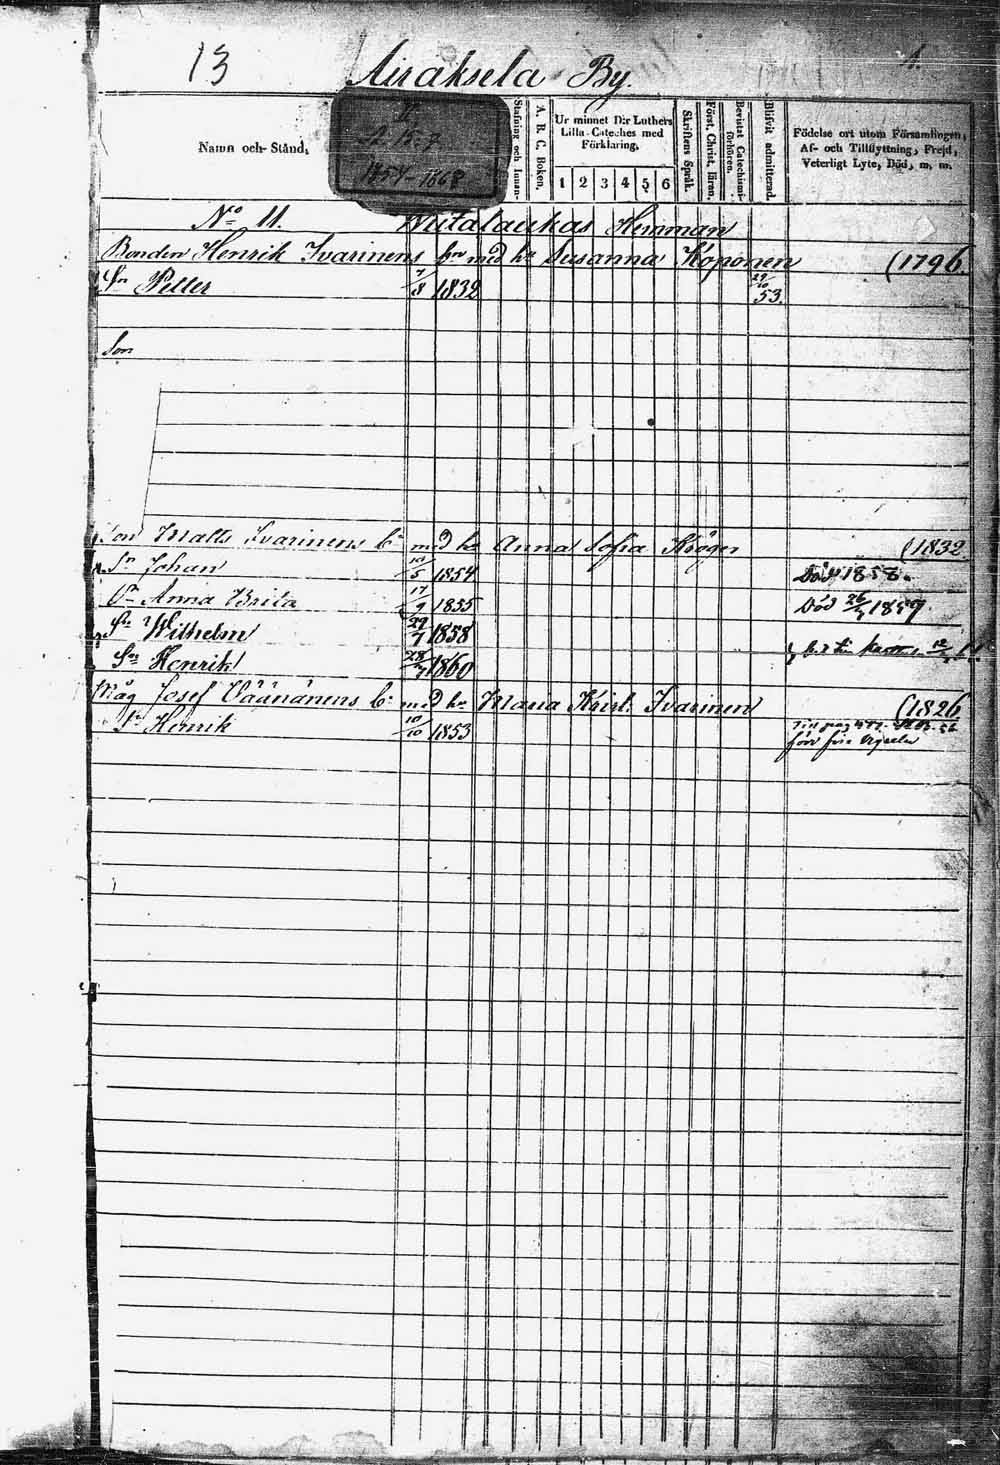 13 Airaksela By. 1.
Namn och Stånd,
Stafning och Innan-
A. B. C. Boken.
Ur minnet D:r Luthers
Lilla Cateches med
Förklaring,
1 2 3 4 5 6
Skriftens Språk.
Först. Christ. läran.
Bevistat Catechismi-
förhören.
Blifvit admitterad.
Födelse ort utom Församlingen,
Af- och Tillflyttning, Frejd,
Veterligt Lyte, Död, m. m.
1854-1868
No 11. Hemman
Bonden Henrik Ivarinens med Susanna Koponen (1796.
Petter 8 1832 53.
Son
Son Matts Ivarinens b: med h: Anna Sofia Kröger (1832
Johan 10/5 1854 Död 1858.
Anna Brita 17/9 1855 Död 26/ 1859.
Wilhelm 29/7 1858
Henrik 28/ 1860
Måg Josef Väänänens b: med h: Maria Krist: Ivarinen (1826
Henrik 10/10 1853